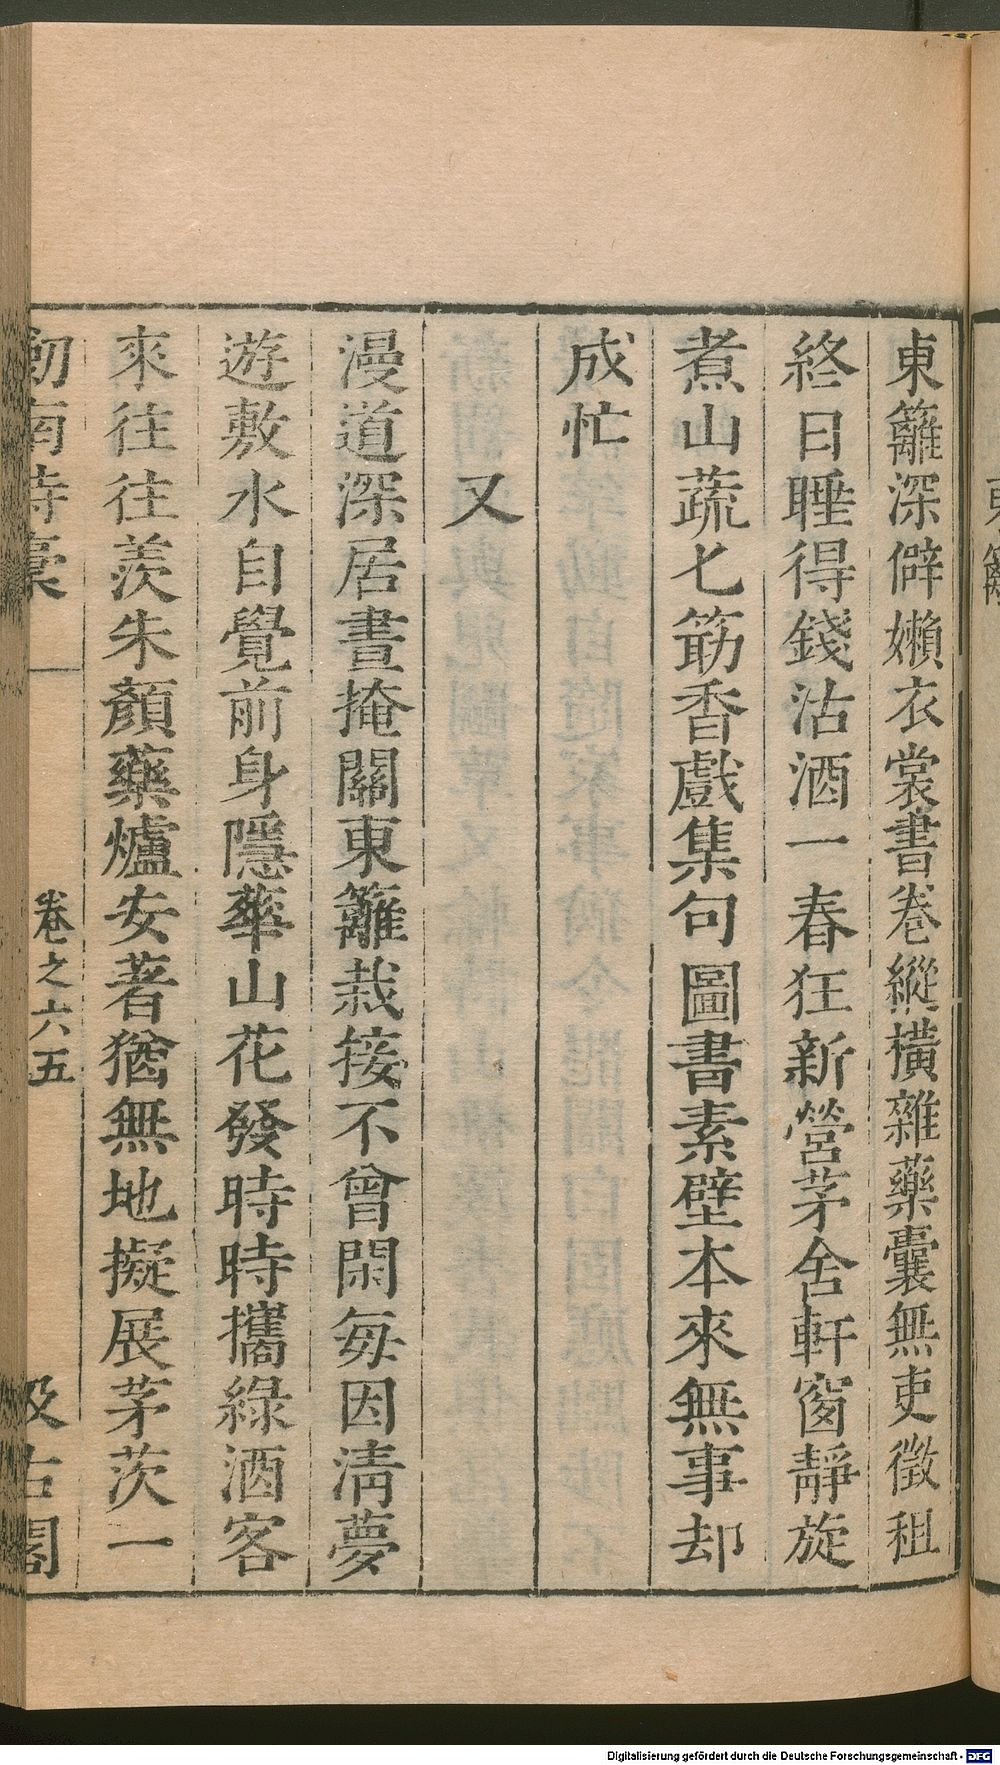 東籬深僻嬾衣裳書卷縱橫雜藥囊無吏徵租
終日睡得錢沽酒一春狂新營茅舍軒窗靜旋
煮山蔬匕筯香戲集句圖書素壁本來無事却
成忙
又
漫道深居晝掩關東籬栽接不曾閑每因清夢
遊敷水自覺前身隱華山花發時時攜綠酒客
來往往羨朱顏藥爐安著猶無地擬展茅茨一
劒南詩稾
卷之六五
汲古閣
Digitalisierung gefördert durch die Deutsche Forschungsgemeinschaft - DFG